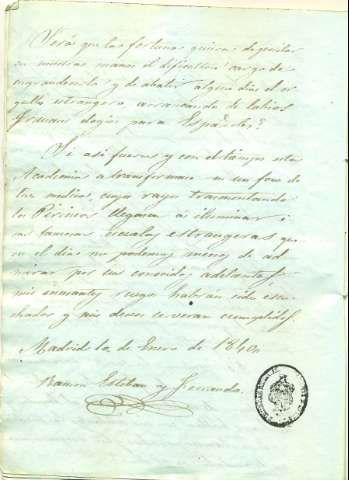 Será que la fortuna quiera depositar
en nuestras manos el dificultoso cargo de
engrandecerla y de abatir algun dia el or
gullo estrangero, arrancando de labios
elogios para Españoles?
Si asi fuera y con el tiempo esta
Academia a transformarse en un foco de
luz, cuyo rayo tramontando
los Pirineos llegara á iluminar
las famosas escuelas estrangeras que
en el dia no podemos menos de ad
mirar por sus conocidos adelantos,
mis constantes ruegos habran sido escu
chados y mis deseos se veran cumplidos.
Madrid 10 de Enero de 1840
Ramon Esteban y Ferrando